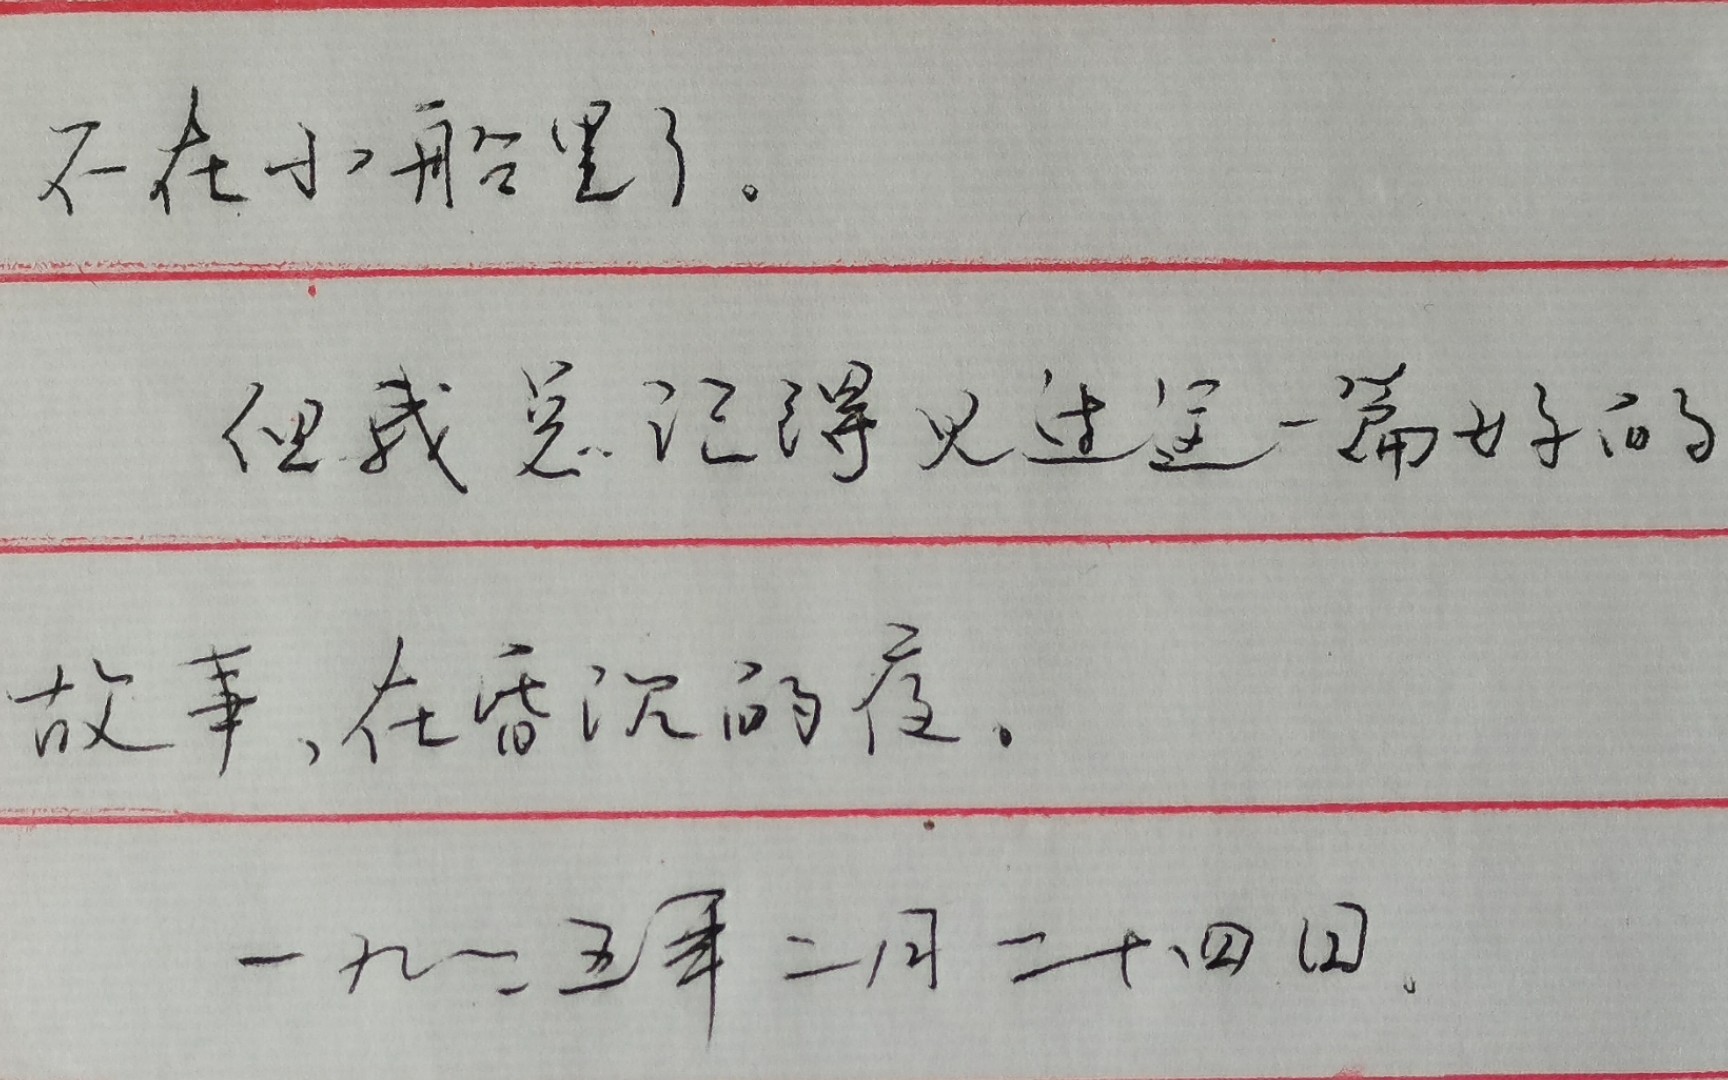 不在小船里了。
但我总记得见过这一篇好的
故事,在昏沉的夜。
一九二五年二月二十四日。